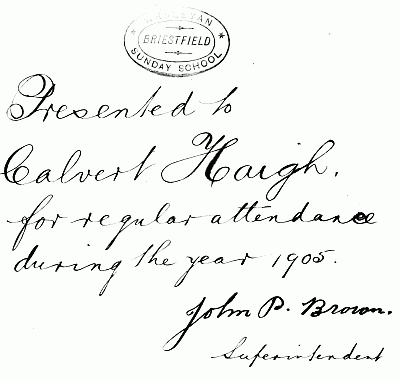 WESLEYAN
BRIESTFIELD
SUNDAY SCHOOL
Presented to
Calvert Haigh.
for regular attendance
during the year 1905.
John P. Brown.
Superintendent